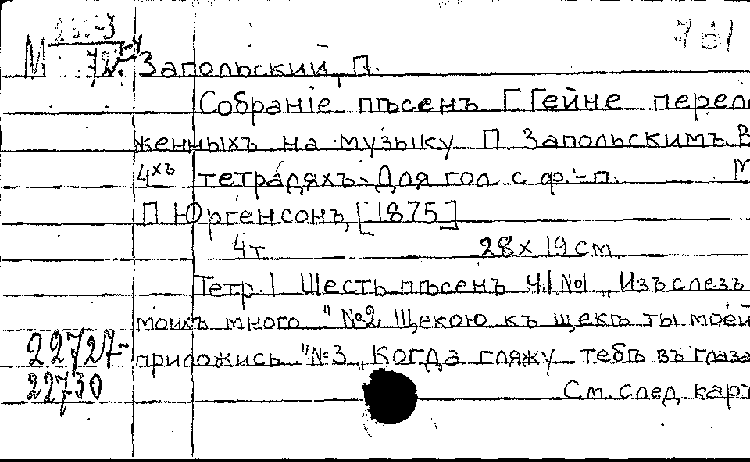 М 72-4 781
Запольский, П.
Собраніе пѣсенъ Г. Гейне перело
женныхъ на музыку П Запольскимъ. В
4хъ тетрадяхъ. Для гол с ф.-п. М
П Юргенсонъ, [1875]
4 т 28 x 19 см
Тетр. I Шесть пѣсенъ Ч.I №1 „Изъ слезъ
моихъ много" №2 Щекою къ щекѣ ты моей
22727- приложись" №3 „Когда гляжу тебѣ въ глаза
22730 См. след. карт